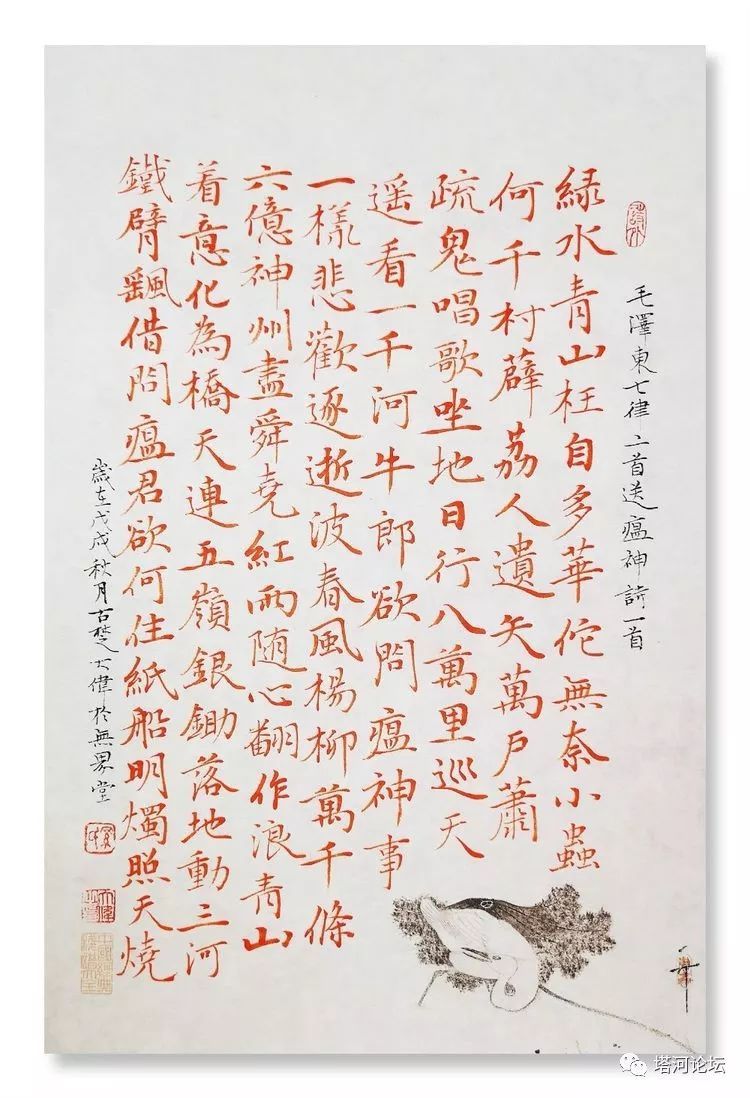 毛澤東七律二首送瘟神詩一首
緑水青山枉自多華佗無奈小蟲
何千村薜荔人遺矢萬户蕭
疏鬼唱歌坐地日行八萬里巡天
遥看一千河牛郎欲問瘟神事
一樣悲歡逐逝波春風楊柳萬千條
六億神州盡舜堯紅雨随心翻作浪青山
着意化為橋天連五嶺銀鋤落地動三河
鐵臂颻借問瘟君欲何往紙船明燭照天燒
歲在戊戌秋月古楚大偉於無界堂
塔河论坛